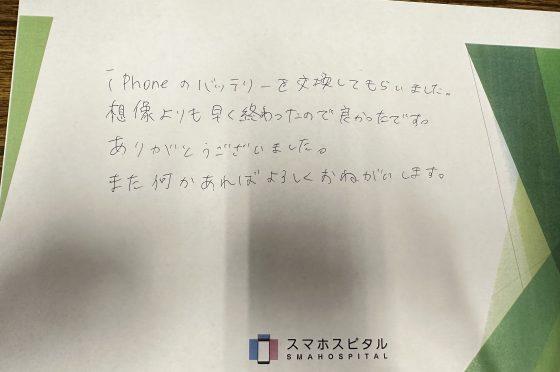 iPhoneのバッテリーを交換してもらいました。
想像よりも早く終わったので良かったです。
ありがとうございました。
また何かあればよろしくおねがいします。
スマホスピタル
SMAHOSPITAL